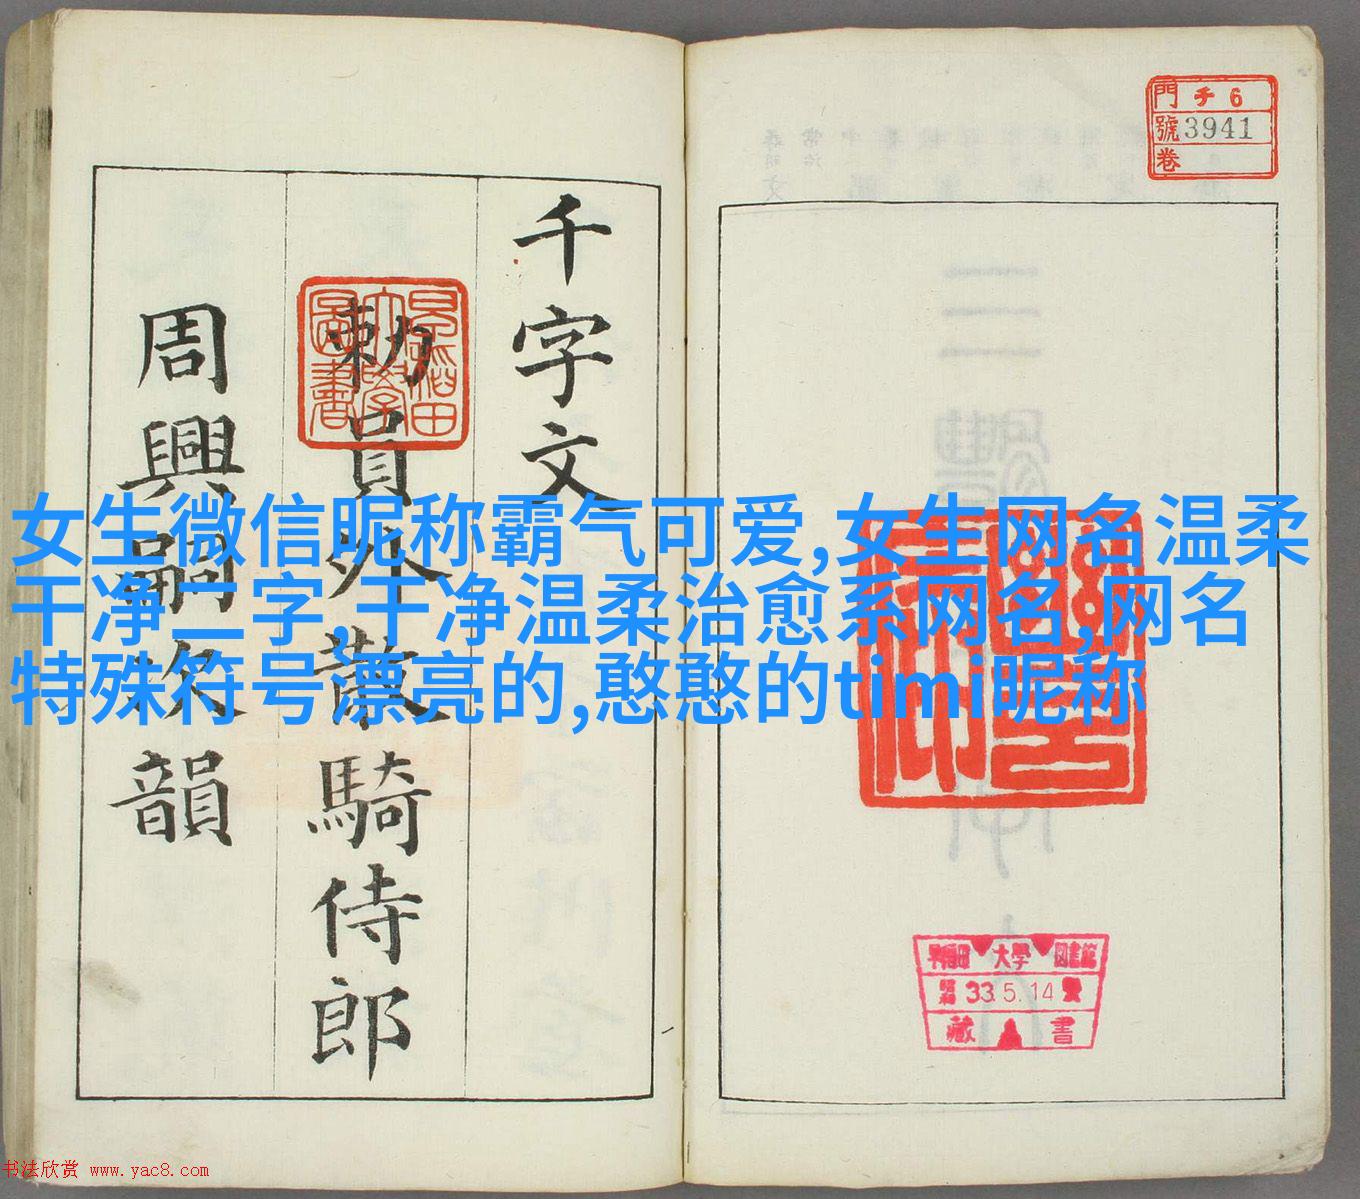 門 チ6
號 3941
卷
千字文
勅員外散騎侍郎
周興嗣次韻
早稻田大學圖書
女生微信昵称霸气可爱,女生网名温柔
干净二字,干净温柔治愈系网名,网名
特殊符号漂亮的,憨憨的timi昵称
早稲田 大學 図書館
昭和 33.5.14
藏書
书法欣赏 www.yac8.com